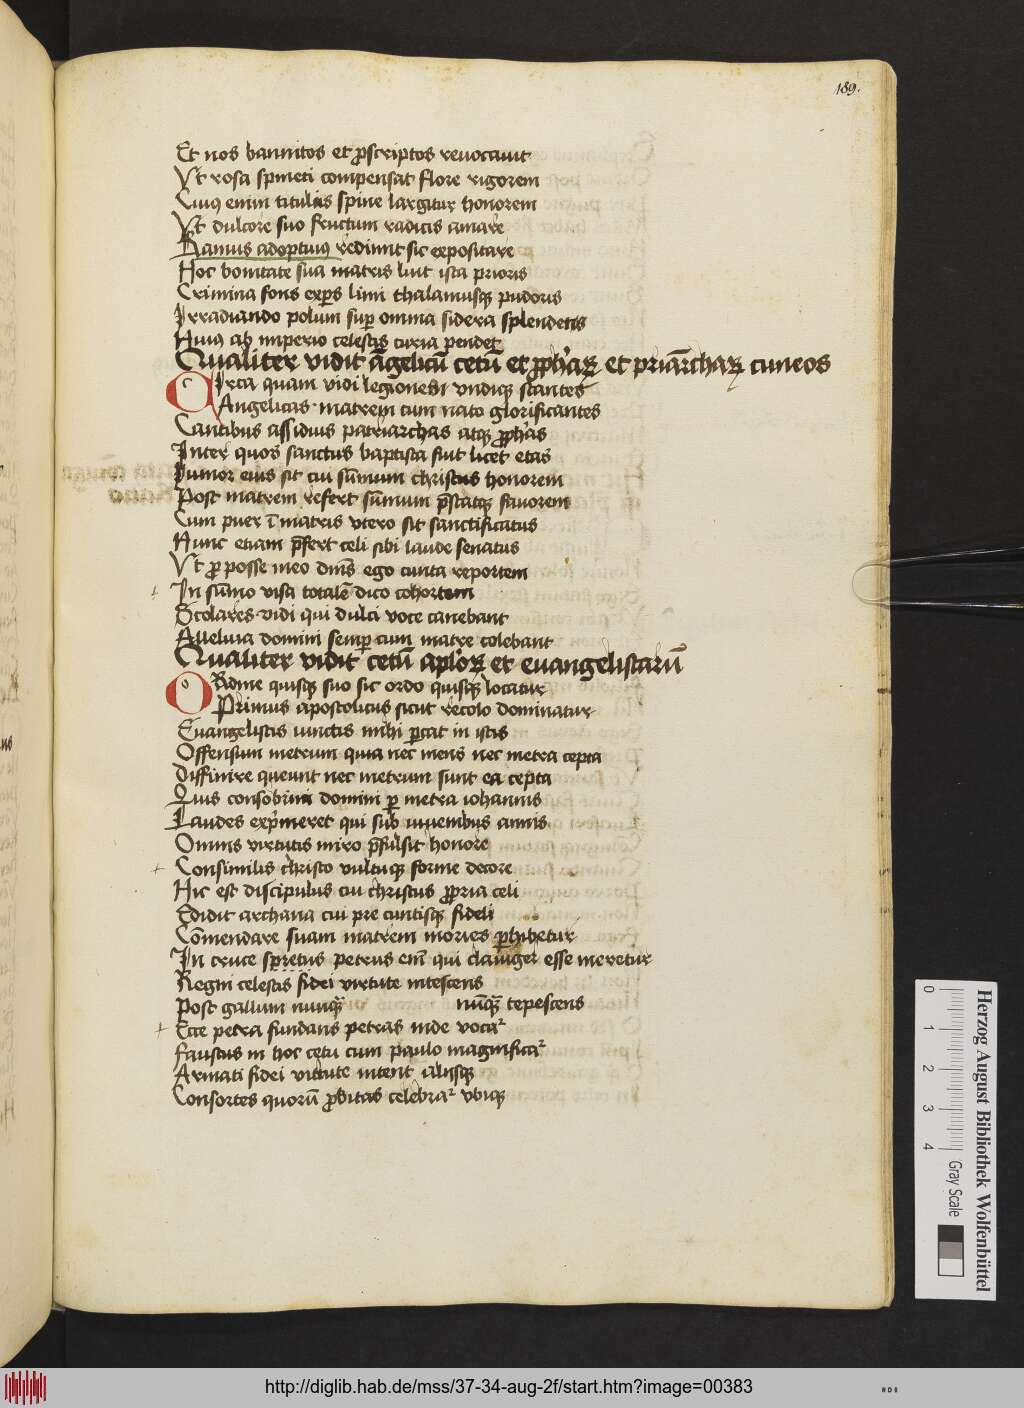 189.
Et nos bannitos et ꝓscriptos reuocauit
Vt rosa spineti compensat flore rigorem
Cuiꝯ enim titulus spine largitur honorem
Vt dulcore suo fructum radicis amare
Ramus adoptiuꝯ redimit sic expositare
Hoc bonitate sua matris luit ista prioris
Crimina fons exꝑs limi thalamusqꝫ pudoris
Irradiando polum suꝑ omnia sidera splendens
Huiꝯ ab imperio celestis curia pendet
Qualiter vidit āgelicū cetū et ꝓph'aꝝ et priarchaꝝ cuneos
Circa quam vidi legionem vndiqꝫ stantes
Angelicas matrem cum nato glorificantes
Cantibus assiduis patriarchas atqꝫ ꝓph'as
Inter quos sanctus baptista fiut licet etas
Iunior eius sit cui sūmum christus honorem
Post matrem refert sūmum p̄statqꝫ fauorem
Cum puer ī matris vtero sit sanctificatus
Nunc etiam p̄fert celi sibi laude senatus
Vt ꝓ posse meo dm̄s ego cunta reportem
In sūmo visa totalē dico cohortem
Scolares vidi qui dulci voce canebant
Alleluia domini semꝑ cum matre colebant
Qualiter vidit cetū apl'oꝝ et euangelistarū
Ordine quisqꝫ suo sic ordo quisqꝫ locatur
Primus apostolicus sicut recolo dominatur
Euangelistis iunctis mihi ꝑcat in istis
Offensum metrum quia nec mens nec metra cepta
Diffinire queunt nec metrum sunt ea cepta
Quis consobrini domini ꝑ metra iohannis
Laudes exp'meret qui sub iuuenibus annis
Omnis virtutis miro p̄fulsit honore
Consimilis christo vultuqꝫ forme decore
Hic est discipulus cui christus ꝓpria celi
Edidit archana cui pre cuntisqꝫ fideli
Cōmendare suam matrem moriens ꝑhibetur
In cruce spretus petrus em̄ qui clauiger esse meretur
Regni celestis fidei virtute nitescens
Post gallum nunqꝫ̄ nūqꝫ̄ tepescens
Ecce petra fundans petras inde vocat᷑
Faustus in hoc cetu cum paulo magnificat᷑
Armati fidei virtute nitent aliisqꝫ
Consortes quorū ꝓbitas celebrat᷑ vbiqꝫ
0 1 2 3 4
Gray Scale
Herzog August Bibliothek Wolfenbüttel
http://diglib.hab.de/mss/37-34-aug-2f/start.htm?image=00383